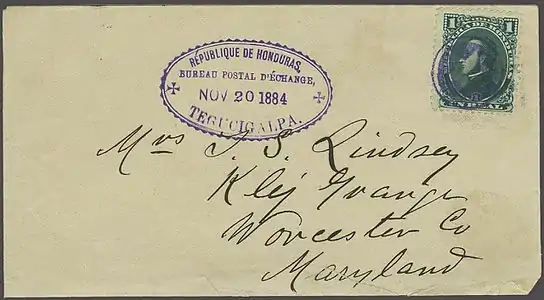 RÉPUBLIQUE DE HONDURAS,
BUREAU POSTAL D'ÉCHANGE,
NOV 20 1884
TEGUCIGALPA.
1 1
UN REAL
Mrs T. S. Lindsey
Klej Grange
Worcester Co
Maryland